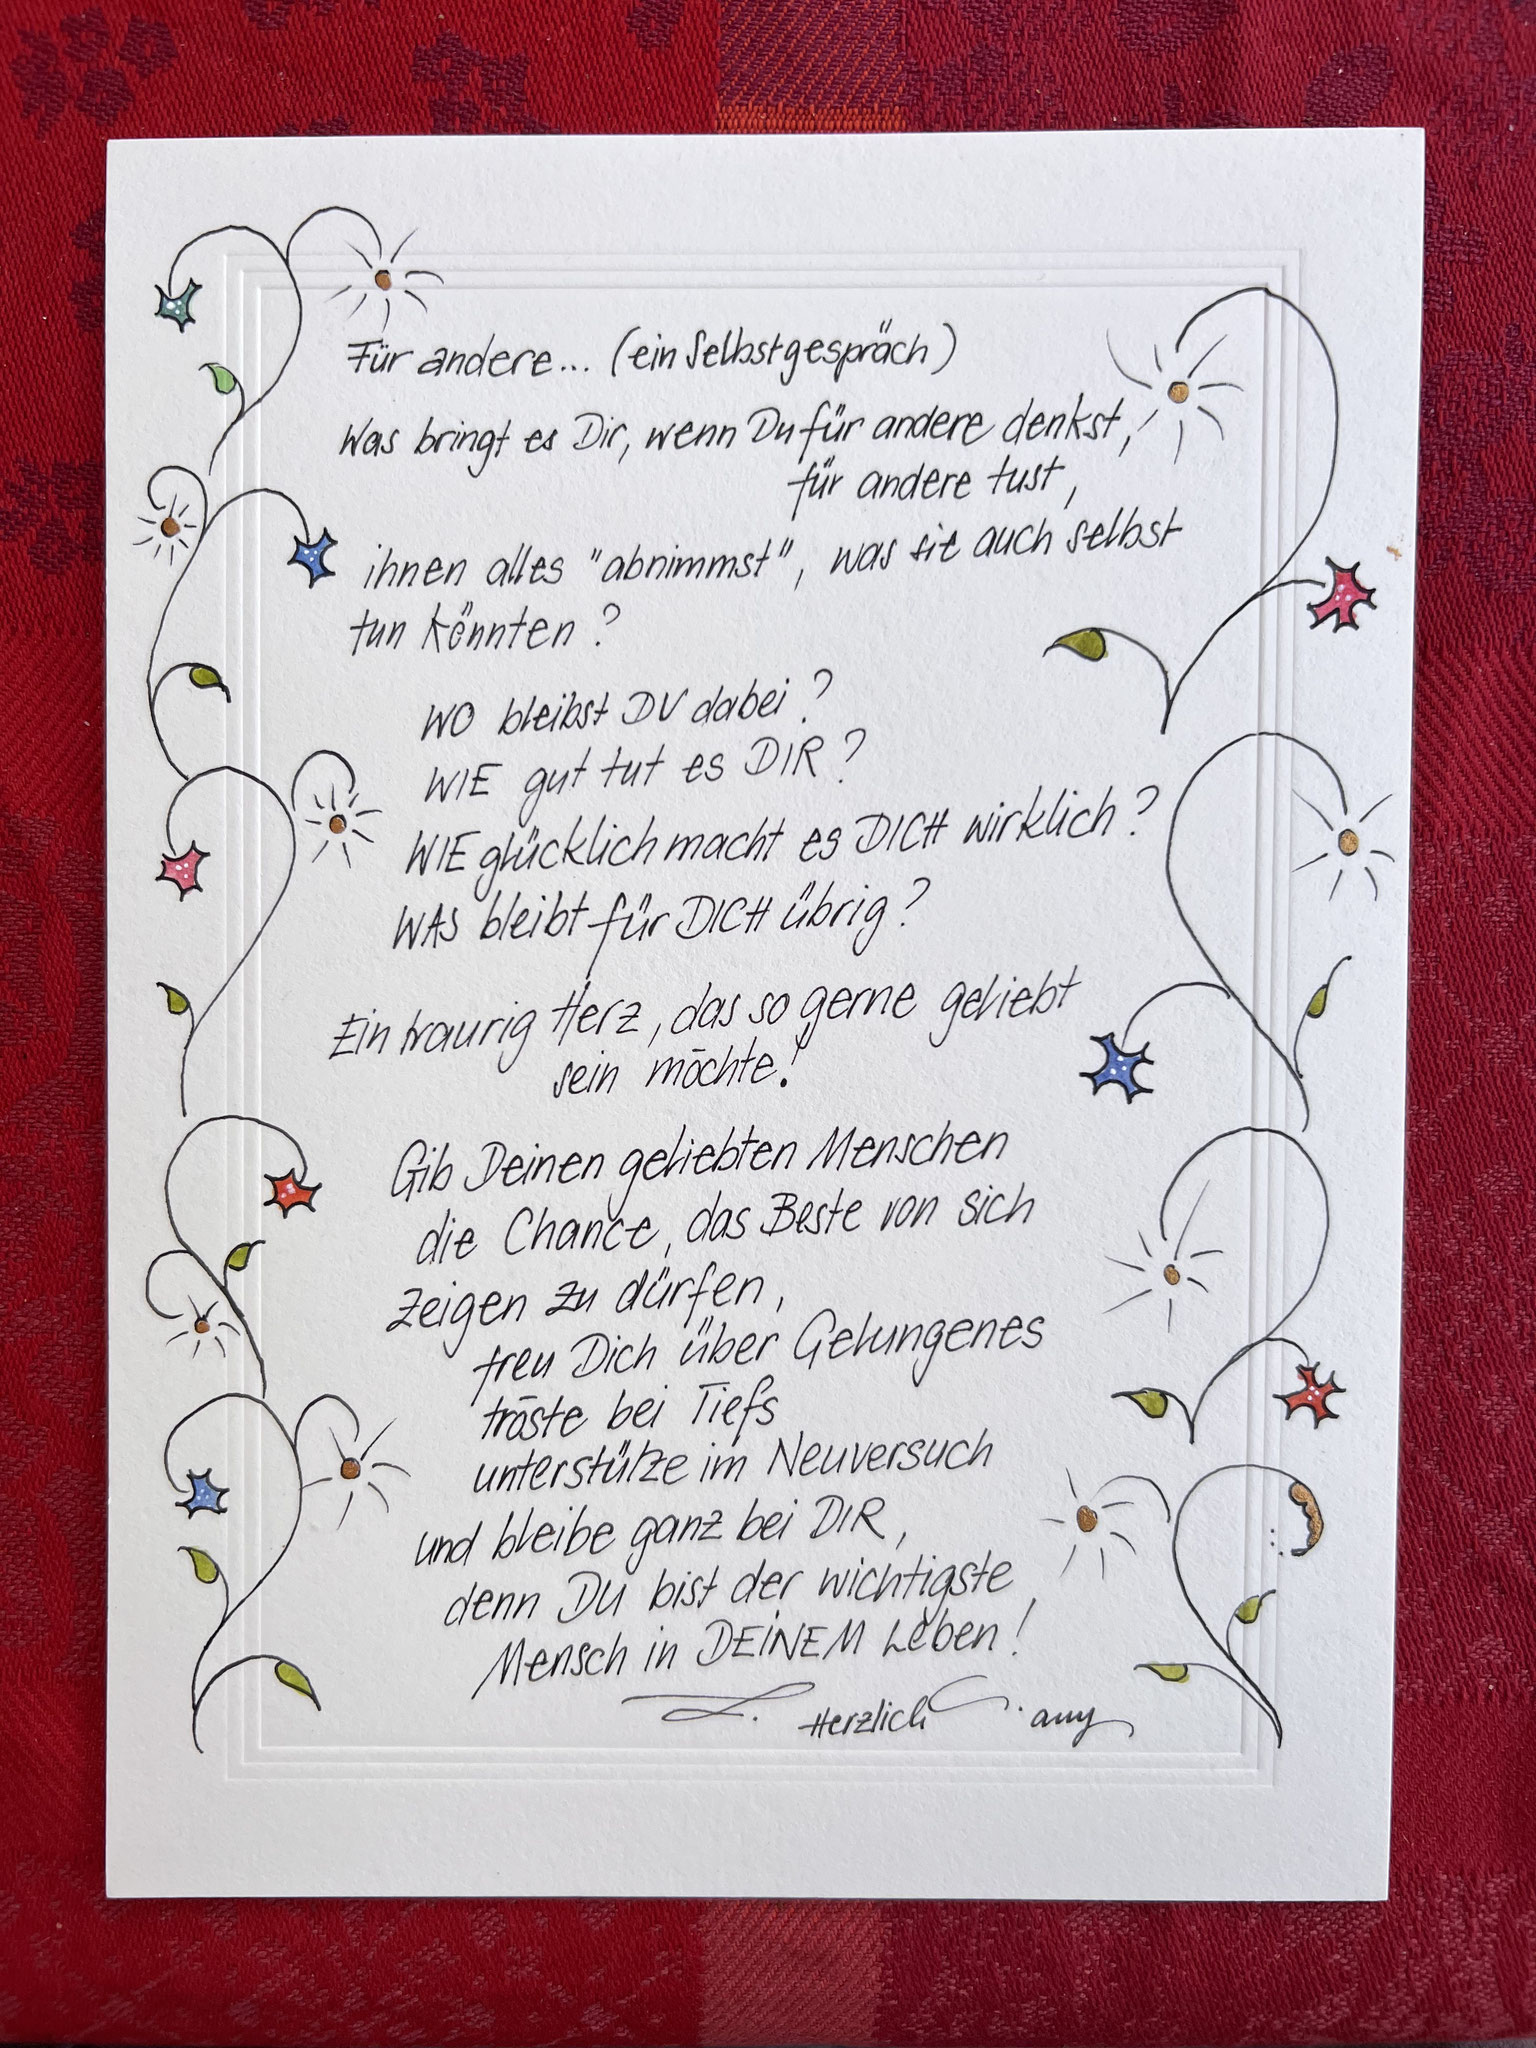 Für andere... (ein Selbstgespräch)
Was bringt es Dir, wenn Du für andere denkst,
für andere tust,
ihnen alles "abnimmst", was sie auch selbst
tun könnten?
WO bleibst DU dabei?
WIE gut tut es DIR?
WIE glücklich macht es DICH wirklich?
WAS bleibt für DICH übrig?
Ein traurig Herz, das so gerne geliebt
sein möchte!
Gib Deinen geliebten Menschen
die Chance, das Beste von sich
zeigen zu dürfen,
freu Dich über Gelungenes
tröste bei Tiefs
unterstütze im Neuversuch
und bleibe ganz bei DIR,
denn DU bist der wichtigste
Mensch in DEINEM Leben!
Herzlich